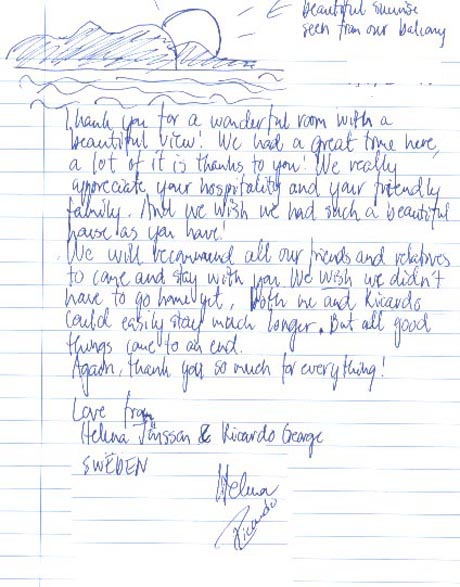 beautiful sunrise
seen from our balcony
Thank you for a wonderful room with a
beautiful view! We had a great time here,
a lot of it is thanks to you! We really
appreciate your hospitality and your friendly
family. And we wish we had such a beautiful
house as you have!
We will recommend all our friends and relatives
to come and stay with you. We wish we didn't
have to go home yet, both me and Ricardo
could easily stay much longer. But all good
things come to an end.
Again, thank you so much for everything!
Love from
Helena Jönsson & Ricardo George
SWEDEN
Helena
Ricardo